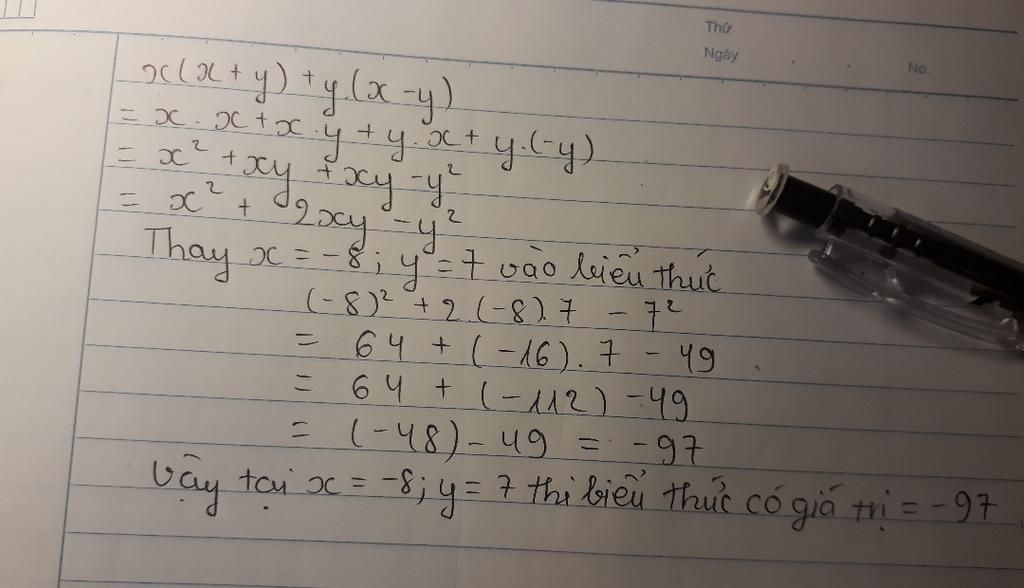 Thứ
Ngày
No.
x(x+y)+y.(x-y)
= x . x + x . y + y . x + y . (-y)
= x² + xy + xy - y²
= x² + 2xy - y²
Thay x = -8; y = 7 vào biểu thức
(-8)² + 2 (-8).7 - 7²
= 64 + (-16) . 7 - 49
= 64 + (-112) - 49
= (-48) - 49 = -97
Vậy tại x = -8; y = 7 thì biểu thức có giá trị = -97